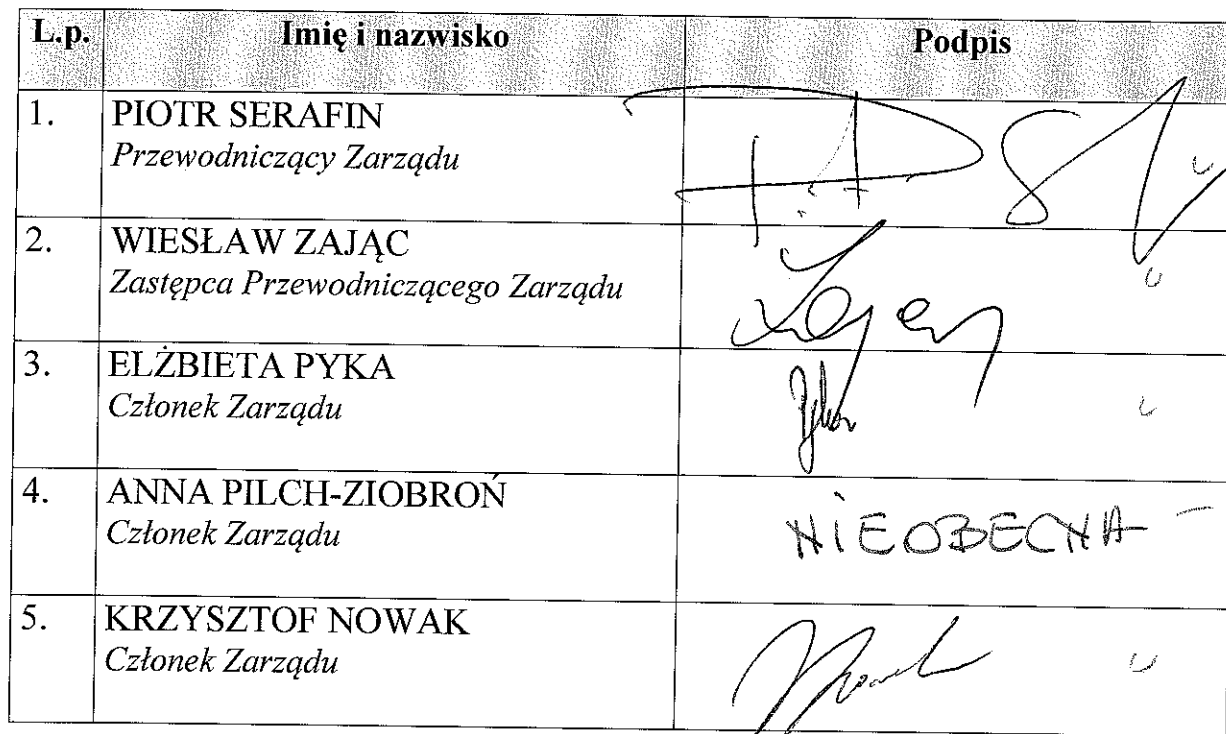 L.p. Imię i nazwisko Podpis
1. PIOTR SERAFIN
Przewodniczący Zarządu
2. WIESŁAW ZAJĄC
Zastępca Przewodniczącego Zarządu
3. ELŻBIETA PYKA
Członek Zarządu
4. ANNA PILCH-ZIOBROŃ
Członek Zarządu
NIEOBECNA -
5. KRZYSZTOF NOWAK
Członek Zarządu